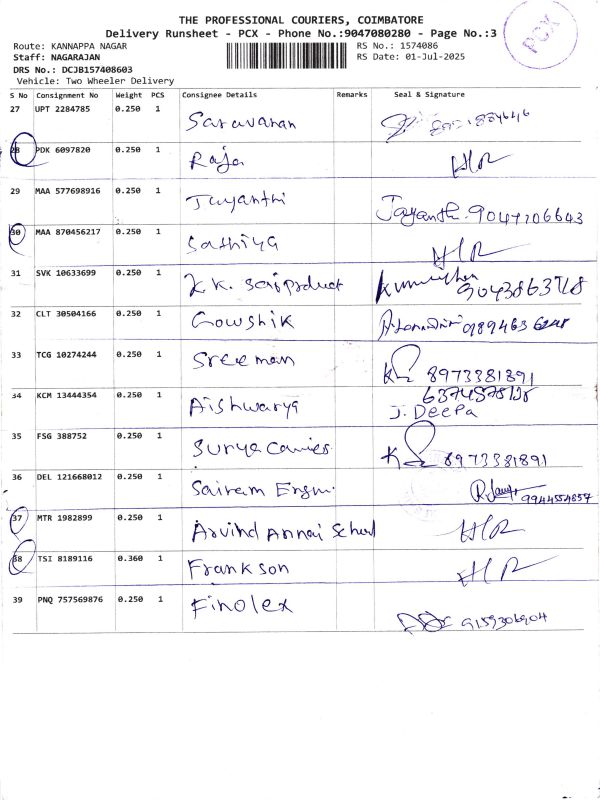 THE PROFESSIONAL COURIERS, COIMBATORE
Delivery Runsheet - PCX - Phone No.:9047080280 - Page No.:3
PCX
Route: KANNAPPA NAGAR RS No.: 1574086
Staff: NAGARAJAN RS Date: 01-Jul-2025
DRS No.: DCJB157408603
Vehicle: Two Wheeler Delivery
S No Consignment No Weight PCS Consignee Details Remarks Seal & Signature
27 UPT 2284785 0.250 1 Saravanan
28 PDK 6097820 0.250 1 Raja HLR
29 MAA 577698916 0.250 1 Jayanthi Jayanthi. 9047706643
30 MAA 870456217 0.250 1 Sathiya HLR
31 SVK 10633699 0.250 1 K.K. Saiproduct 9043863718
32 CLT 30504166 0.250 1 Gowshik
33 TCG 10274244 0.250 1 Sreeman 8973381891
34 KCM 13444354 0.250 1 Aishwarya J. Deepa
35 FSG 388752 0.250 1 Surya Courier 8973381891
36 DEL 121668012 0.250 1 Sairam Engm. 9944554857
37 MTR 1982899 0.250 1 Arvind Annai School HLR
38 TSI 8189116 0.360 1 Frankson HLR
39 PNQ 757569876 0.250 1 Finolex 9159306904